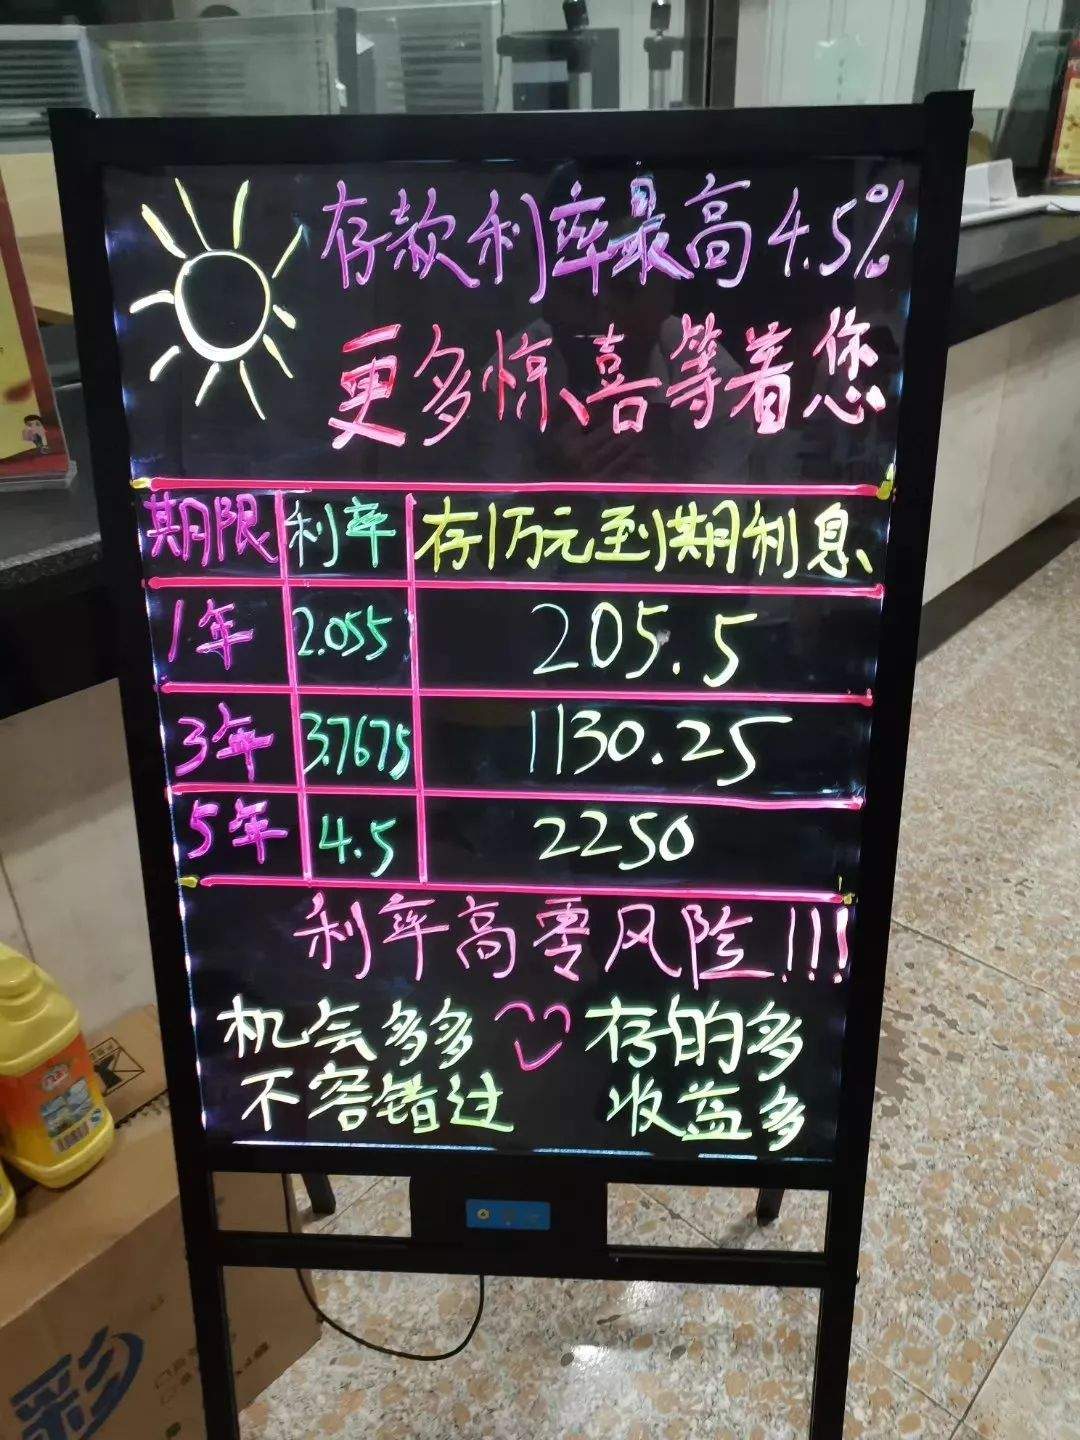 存款利率最高4.5%
更多惊喜等着您
期限 利率 存1万元至期利息
1年 2.055 205.5
3年 3.7675 1130.25
5年 4.5 2250
利率高零风险!!!
机会多多 存的多
不容错过 收益多
彩